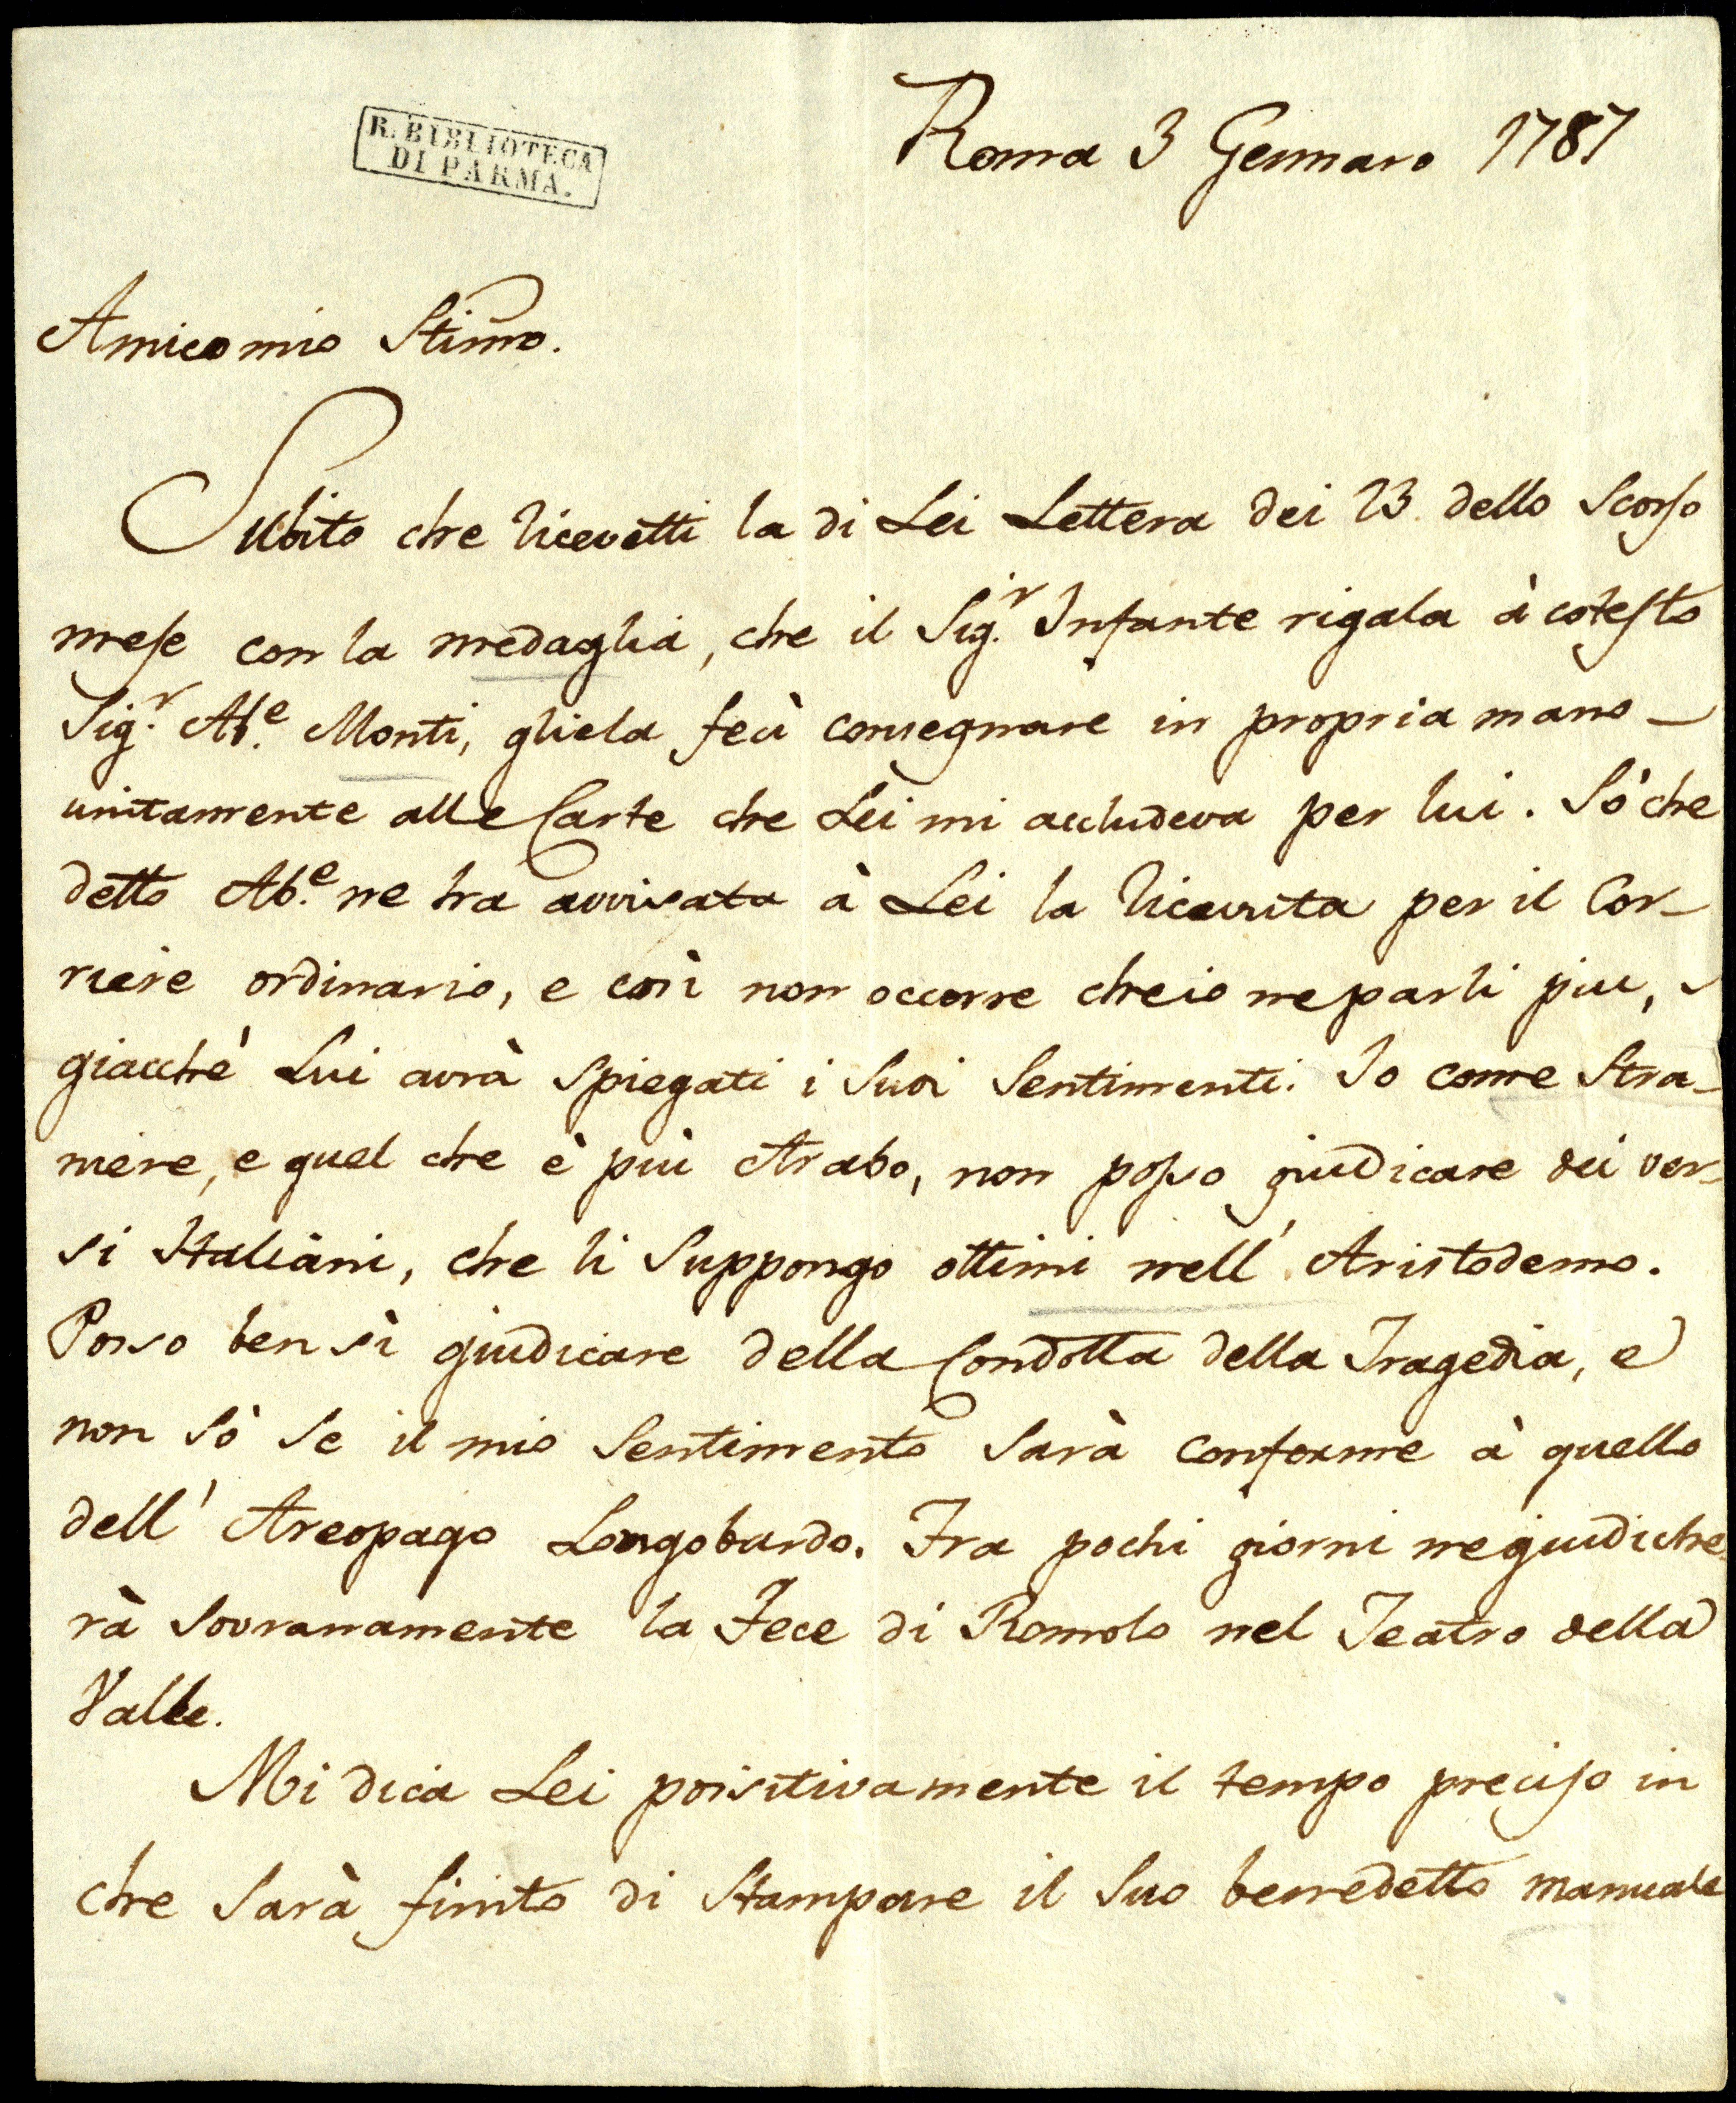 R. BIBLIOTECA
DI PARMA.
Roma 3 Gennaro 1787
Amico mio Stimo.
Subito che ricevetti la di Lei Lettera dei 23. dello scorso
mese con la medaglia, che il Sig.r Infante rigala à cotesto
Sig.r Ab.e Monti, gliela feci consegnare in propria mano
unitamente alle Carte che Lei mi accludeva per lui. Sò che
detto Ab.e ne ha avvisata à Lei la ricevuta per il Cor-
riere ordinario, e così non occorre che io ne parli piu,
giacchè Lui avrà spiegati i suoi sentimenti. Io come stra-
niere, e quel che è più Arabo, non posso giudicare dei ver-
si Italiani, che li suppongo ottimi nell' Aristodemo.
Posso ben sì giudicare della Condotta della Tragedia, e
non sò se il mio sentimento sarà conforme à quello
dell' Areopago Longobardo. Fra pochi giorni ne giudiche-
rà sovranamente la Fece di Romolo nel Teatro della
Valle.
Mi dica Lei poisitivamente il tempo preciso in
che sarà finito di stampare il suo benedetto manuale